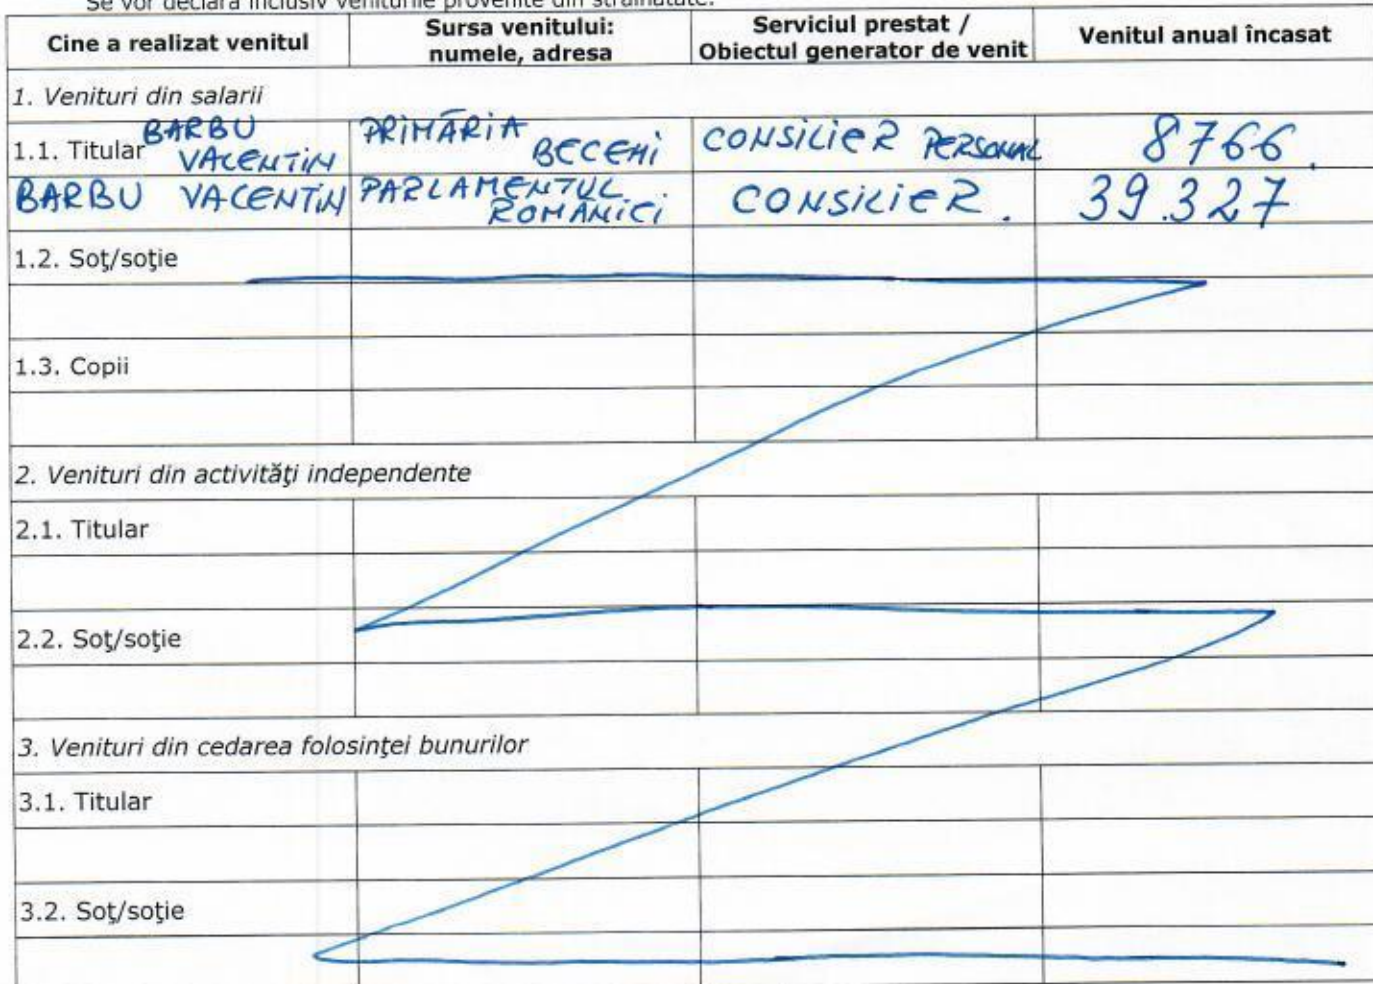 Se vor declara inclusiv veniturile provenite din străinătate.
Cine a realizat venitul
Sursa venitului:
numele, adresa
Serviciul prestat /
Obiectul generator de venit
Venitul anual încasat
1. Venituri din salarii
1.1. Titular BARBU
VALENTIN
PRIMĂRIA
BECENI
CONSILIER PERSONAL
8766.
BARBU VALENTIN
PARLAMENTUL
ROMÂNIEI
CONSILIER.
39.327
1.2. Soţ/soţie
1.3. Copii
2. Venituri din activităţi independente
2.1. Titular
2.2. Soţ/soţie
3. Venituri din cedarea folosinţei bunurilor
3.1. Titular
3.2. Soţ/soţie